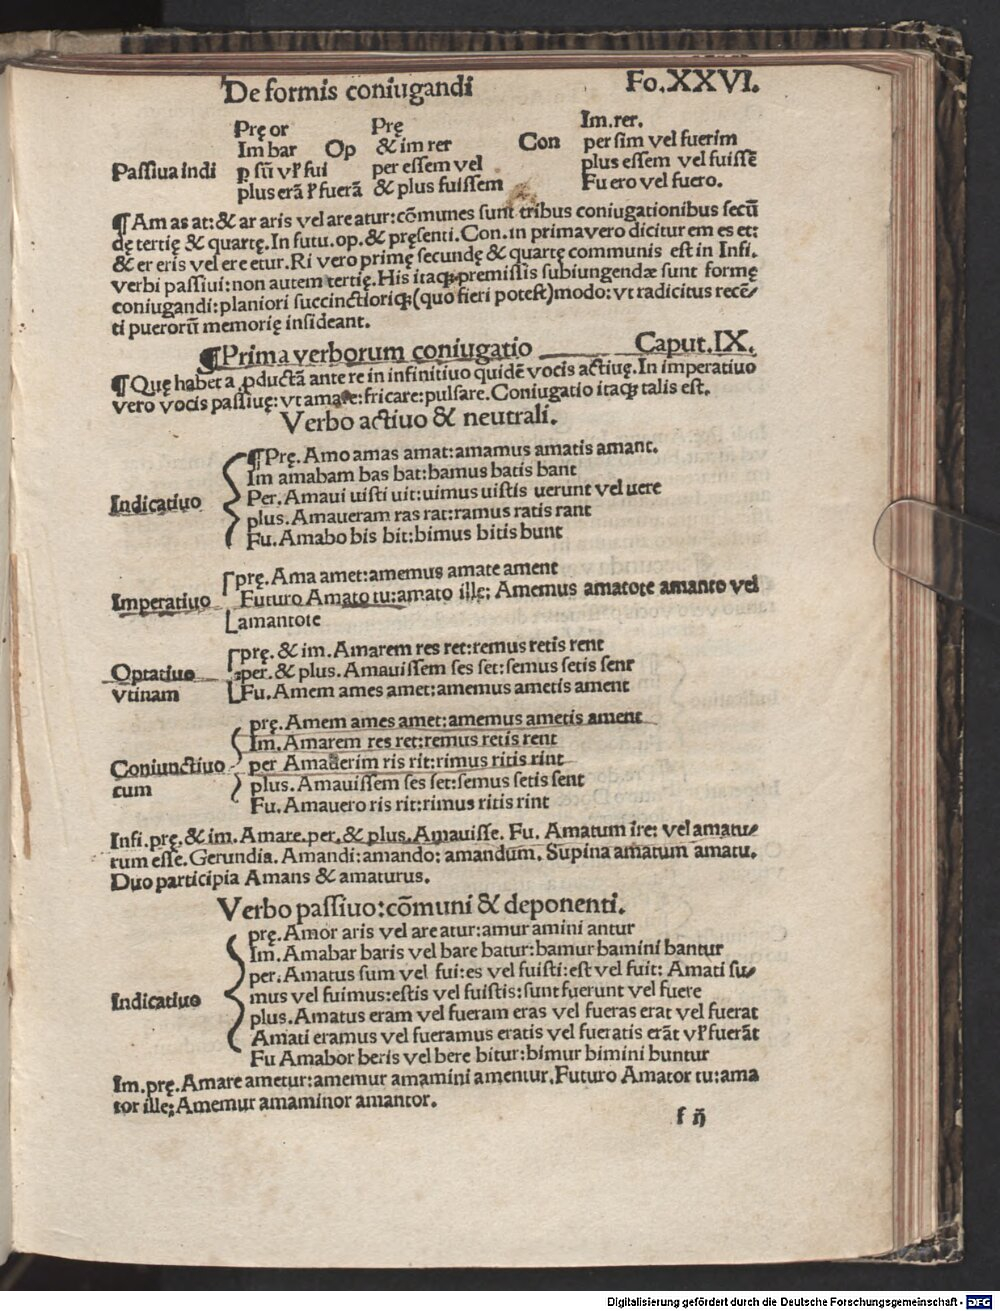 De formis coniugandi Fo.XXVI.
Passiua indi
Prę or
Im bar
ꝑ sū vꝉ fui
plus erā ꝉ fuerā
Op
Prę
& im rer
per essem vel
& plus fuissem
Con
Im.rer.
per sim vel fuerim
plus essem vel fuissē
Fu ero vel fuero.
¶Am as at:& ar aris vel are atur:cōmunes sunt tribus coniugationibus secū
dę tertię & quartę.In futu.op.& pręsenti.Con.in prima vero dicitur em es et:
& er eris vel ere etur.Ri vero primę secundę & quartę communis est in Infi.
verbi passiui:non autem tertię.His itaqꝫ premissis subiungendæ sunt formę
coniugandi:planiori succinctioriqꝫ(quo fieri potest)modo:vt radicitus recē/
ti puerorū memorię insideant.
¶Prima verborum coniugatio Caput.IX.
¶Quę habet a ꝓductā ante re in infinitiuo quidē vocis actiuę.In imperatiuo
vero vocis passiuę:vt amare:fricare:pulsare.Coniugatio itaqꝫ talis est.
Verbo actiuo & neutrali.
Indicatiuo
¶Prę.Amo amas amat:amamus amatis amant.
Im amabam bas bat:bamus batis bant
Per.Amaui uisti uit:uimus uistis uerunt vel uere
plus.Amaueram ras rat:ramus ratis rant
Fu.Amabo bis bit:bimus bitis bunt
Imperatiuo
prę.Ama amet:amemus amate ament
Futuro Amato tu:amato ille: Amemus amatote amanto vel
amantote
Optatiuo
vtinam
prę.& im.Amarem res ret:remus retis rent
per.& plus.Amauissem ses set:semus setis sent
Fu.Amem ames amet:amemus ametis ament
Coniunctiuo
cum
prę.Amem ames amet:amemus ametis ament
Im.Amarem res ret:remus retis rent
per Amauerim ris rit:rimus ritis rint
plus.Amauissem ses set:semus setis sent
Fu.Amauero ris rit:rimus ritis rint
Infi.prę.& im.Amare.per.& plus.Amauisse. Fu. Amatum ire: vel amatu/
rum esse.Gerundia.Amandi:amando:amandum.Supina amatum amatu.
Duo participia Amans & amaturus.
Verbo passiuo:cōmuni & deponenti.
Indicatiuo
prę.Amor aris vel are atur:amur amini antur
Im.Amabar baris vel bare batur:bamur bamini bantur
per.Amatus sum vel fui:es vel fuisti:est vel fuit: Amati su/
mus vel fuimus:estis vel fuistis:sunt fuerunt vel fuere
plus.Amatus eram vel fueram eras vel fueras erat vel fuerat
Amati eramus vel fueramus eratis vel fueratis erāt vꝉ fuerāt
Fu Amabor beris vel bere bitur:bimur bimini buntur
Im.prę.Amare ametur:amemur amamini amentur.Futuro Amator tu:ama
tor ille:Amemur amaminor amantor.
f ij
Digitalisierung gefördert durch die Deutsche Forschungsgemeinschaft - DFG